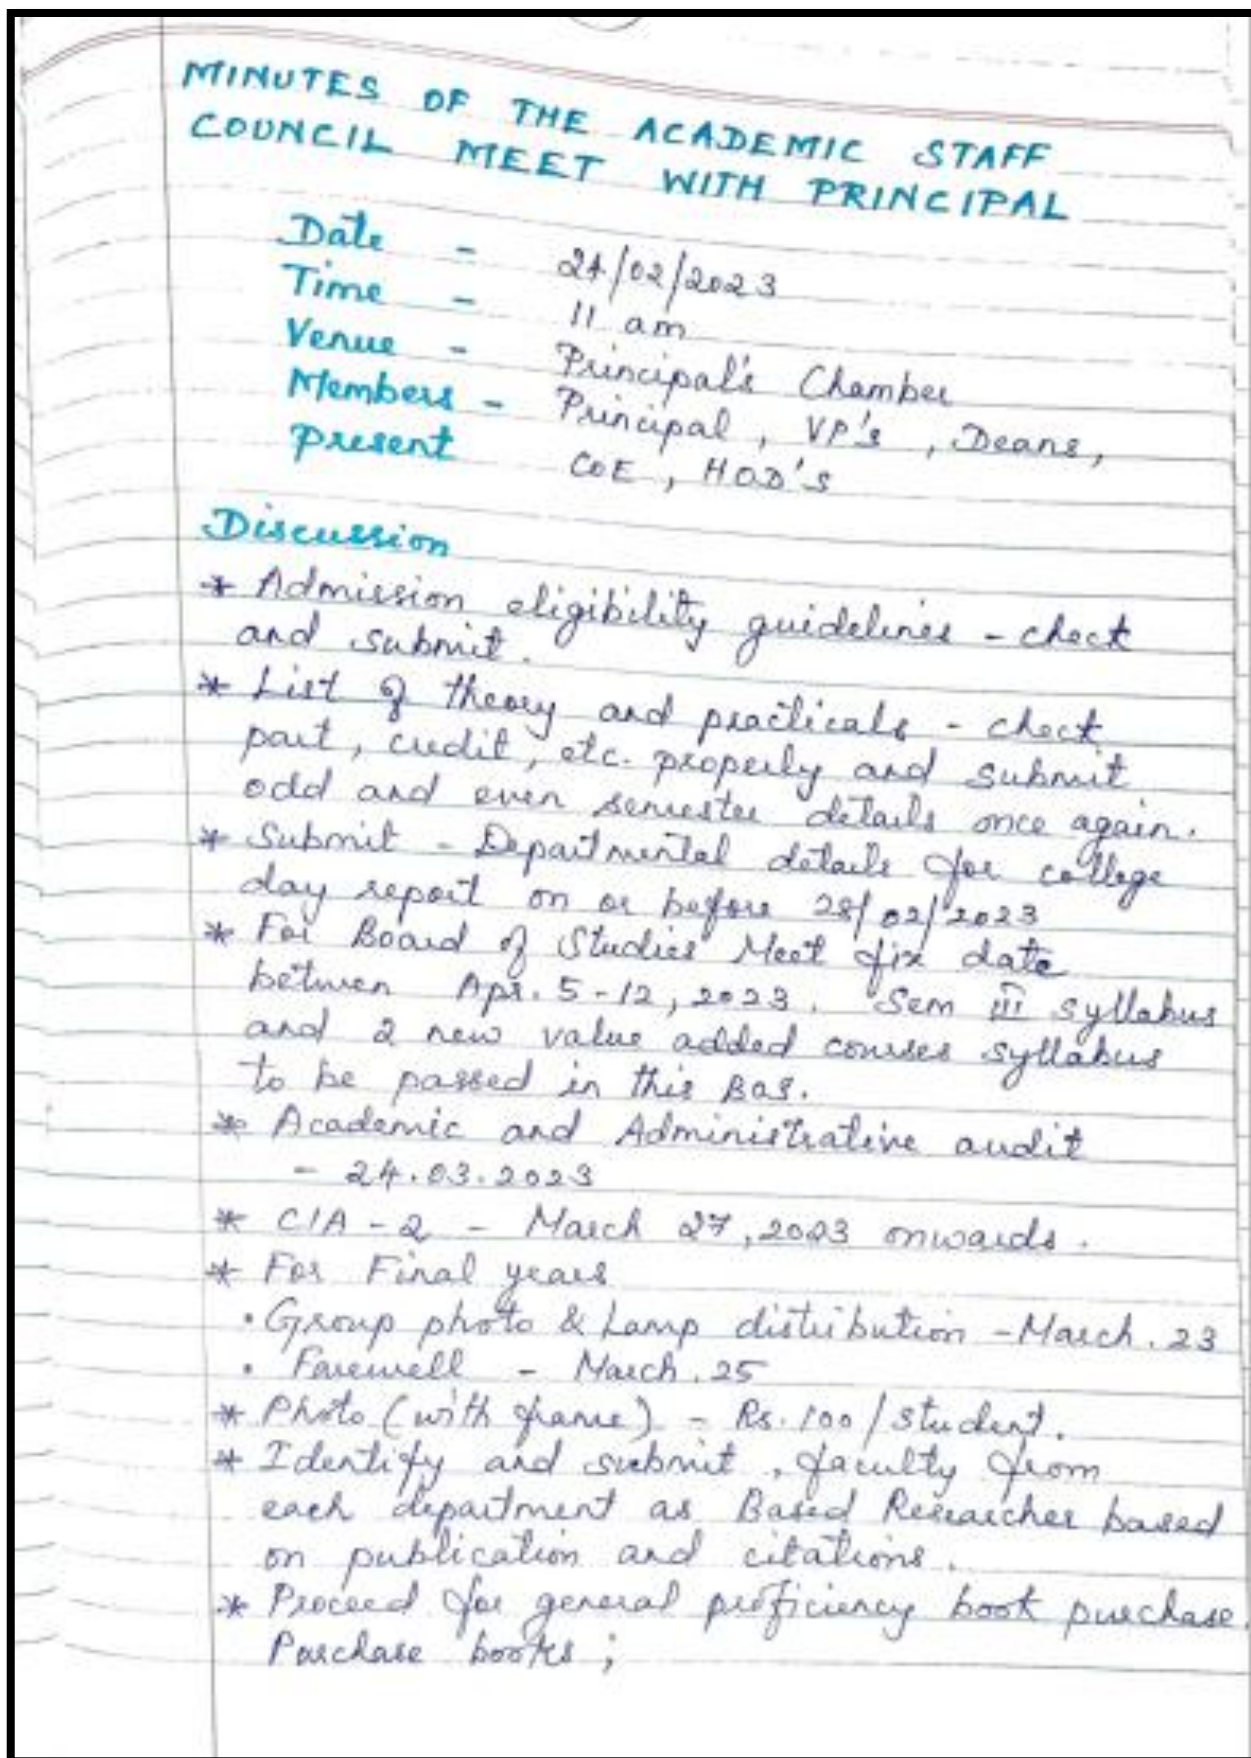 MINUTES OF THE ACADEMIC STAFF
COUNCIL MEET WITH PRINCIPAL
Date - 24/02/2023
Time - 11 am
Venue - Principal's Chamber
Members - Principal, VP's, Deans,
present COE, HOD'S
Discussion
* Admission eligibility guidelines - check
and submit.
* List of theory and practicals - check
part, credit, etc. properly and submit
odd and even semester details once again.
* Submit - Departmental details for college
day report on or before 28/02/2023
* For Board of Studies Meet fix date
between Apr. 5-12, 2023. Sem III syllabus
and 2 new value added courses syllabus
to be passed in this BOS.
* Academic and Administrative audit
- 24.03.2023
* CIA - 2 - March 27, 2023 onwards.
* For Final years
• Group photo & Lamp distribution - March. 23
• Farewell - March. 25
* Photo (with frame) - Rs. 100/student.
* Identify and submit, faculty from
each department as Based Researcher based
on publication and citations.
* Proceed for general proficiency book purchase.
Purchase books;